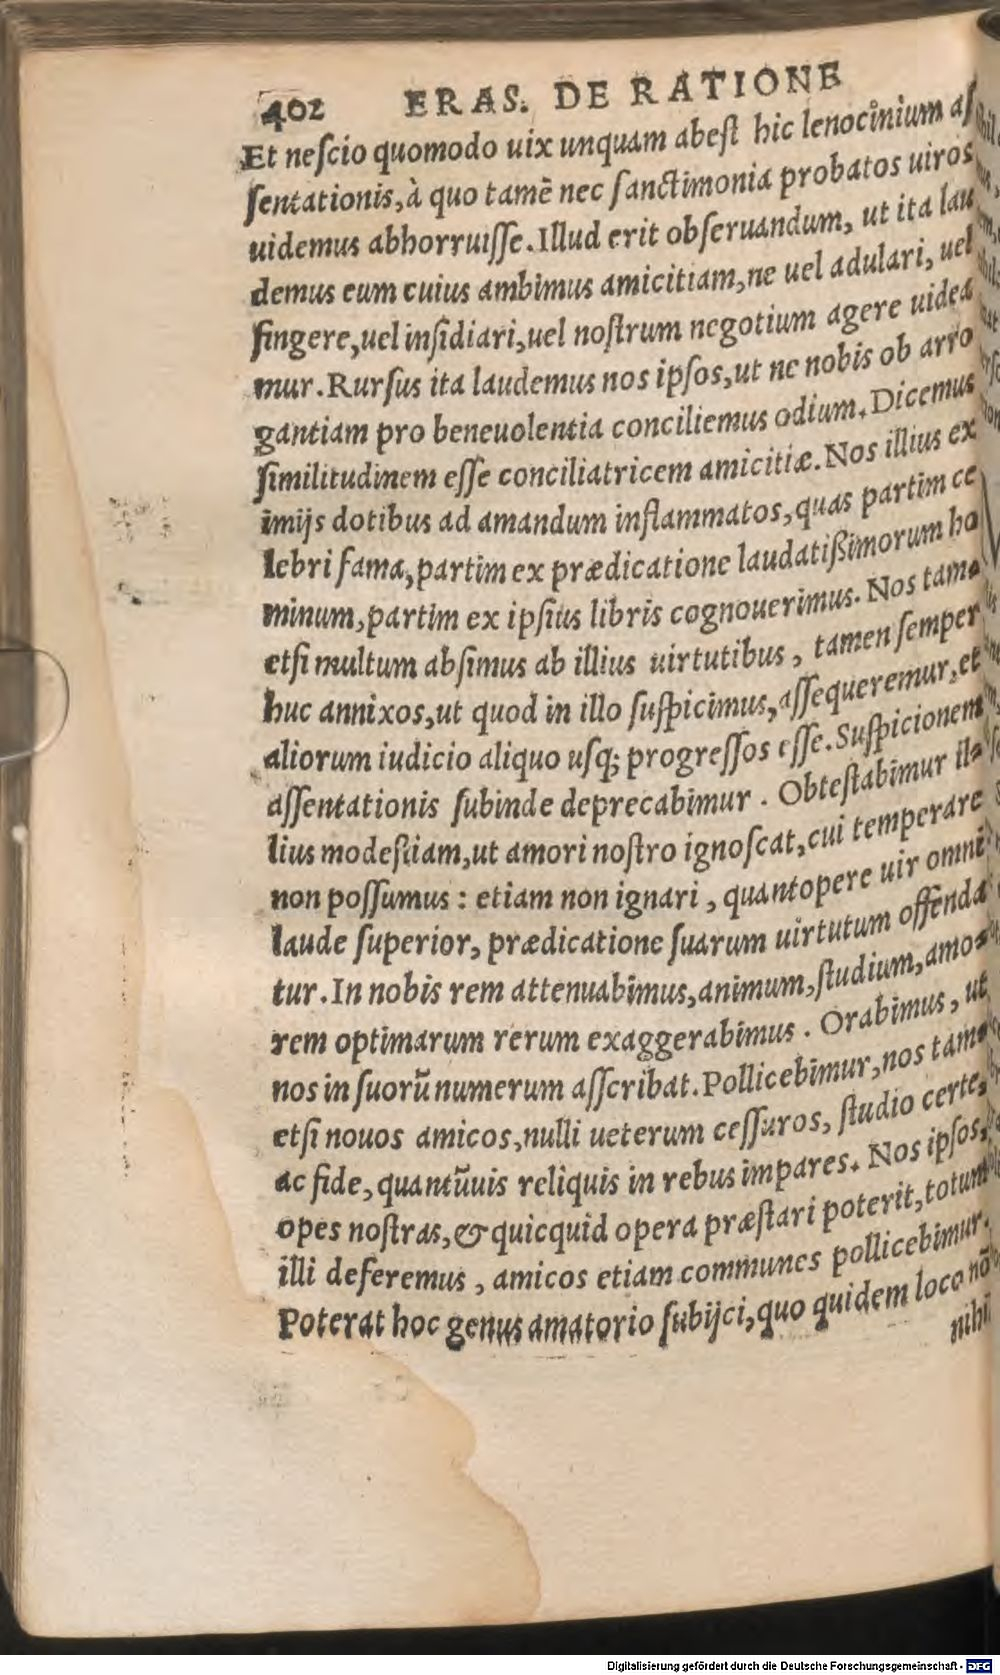 402 ERAS. DE RATIONE
Et neſcio quomodo uix unquam abeſt hic lenocinium aſ
ſentationis, à quo tamē nec ſanctimonia probatos uiros
uidemus abhorruiſſe. Illud erit obſeruandum, ut ita lau
demus eum cuius ambimus amicitiam, ne uel adulari, uel
fingere, uel inſidiari, uel noſtrum negotium agere uidea
mur. Rurſus ita laudemus nos ipſos, ut ne nobis ob arro
gantiam pro beneuolentia conciliemus odium. Dicemus
ſimilitudinem eſſe conciliatricem amicitiæ. Nos illius ex
imijs dotibus ad amandum inflammatos, quas partim ce
lebri fama, partim ex prædicatione laudatißimorum ho
minum, partim ex ipſius libris cognouerimus. Nos tam⸗
etſi multum abſimus ab illius uirtutibus, tamen ſemper
huc annixos, ut quod in illo ſuſpicimus, aſſequeremur, et
aliorum iudicio aliquo uſq; progreſſos eſſe. Suſpicionem
aſſentationis ſubinde deprecabimur. Obteſtabimur il⸗
lius modeſtiam, ut amori noſtro ignoſcat, cui temperare
non poſſumus: etiam non ignari, quantopere uir omni
laude ſuperior, prædicatione ſuarum uirtutum offenda
tur. In nobis rem attenuabimus, animum, ſtudium, amo⸗
rem optimarum rerum exaggerabimus. Orabimus, ut
nos in ſuorū numerum aſſcribat. Pollicebimur, nos tam⸗
etſi nouos amicos, nulli ueterum ceſſuros, ſtudio certe,
ac fide, quantūuis reliquis in rebus impares. Nos ipſos,
opes noſtras, & quicquid opera præſtari poterit, totum
illi deferemus, amicos etiam communes pollicebimur.
Poterat hoc genus amatorio ſubijci, quo quidem loco nō
nihil
Digitalisierung gefördert durch die Deutsche Forschungsgemeinschaft - DFG